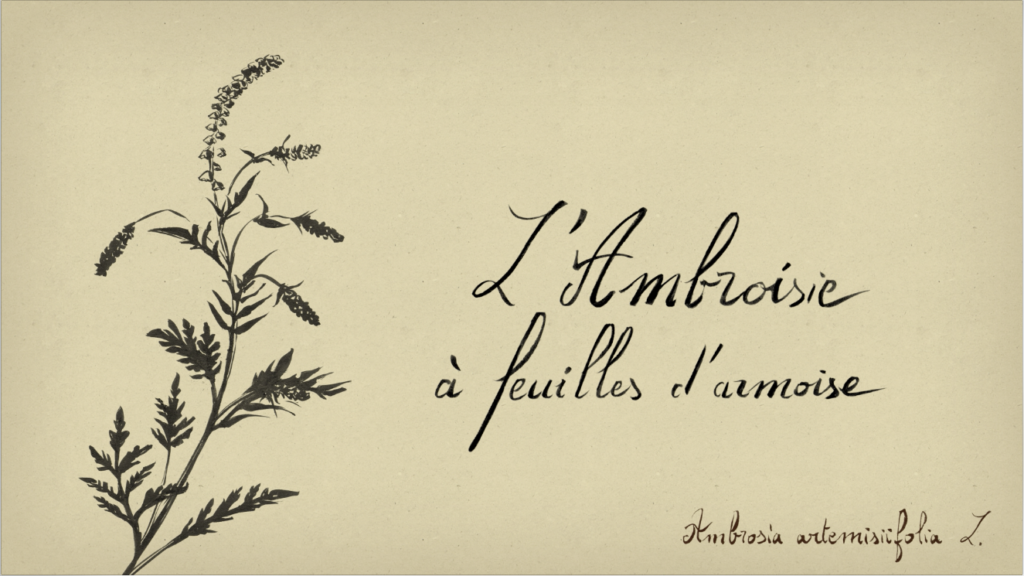 L'Ambroisie
à feuilles d'armoise
Ambrosia artemisiifolia L.